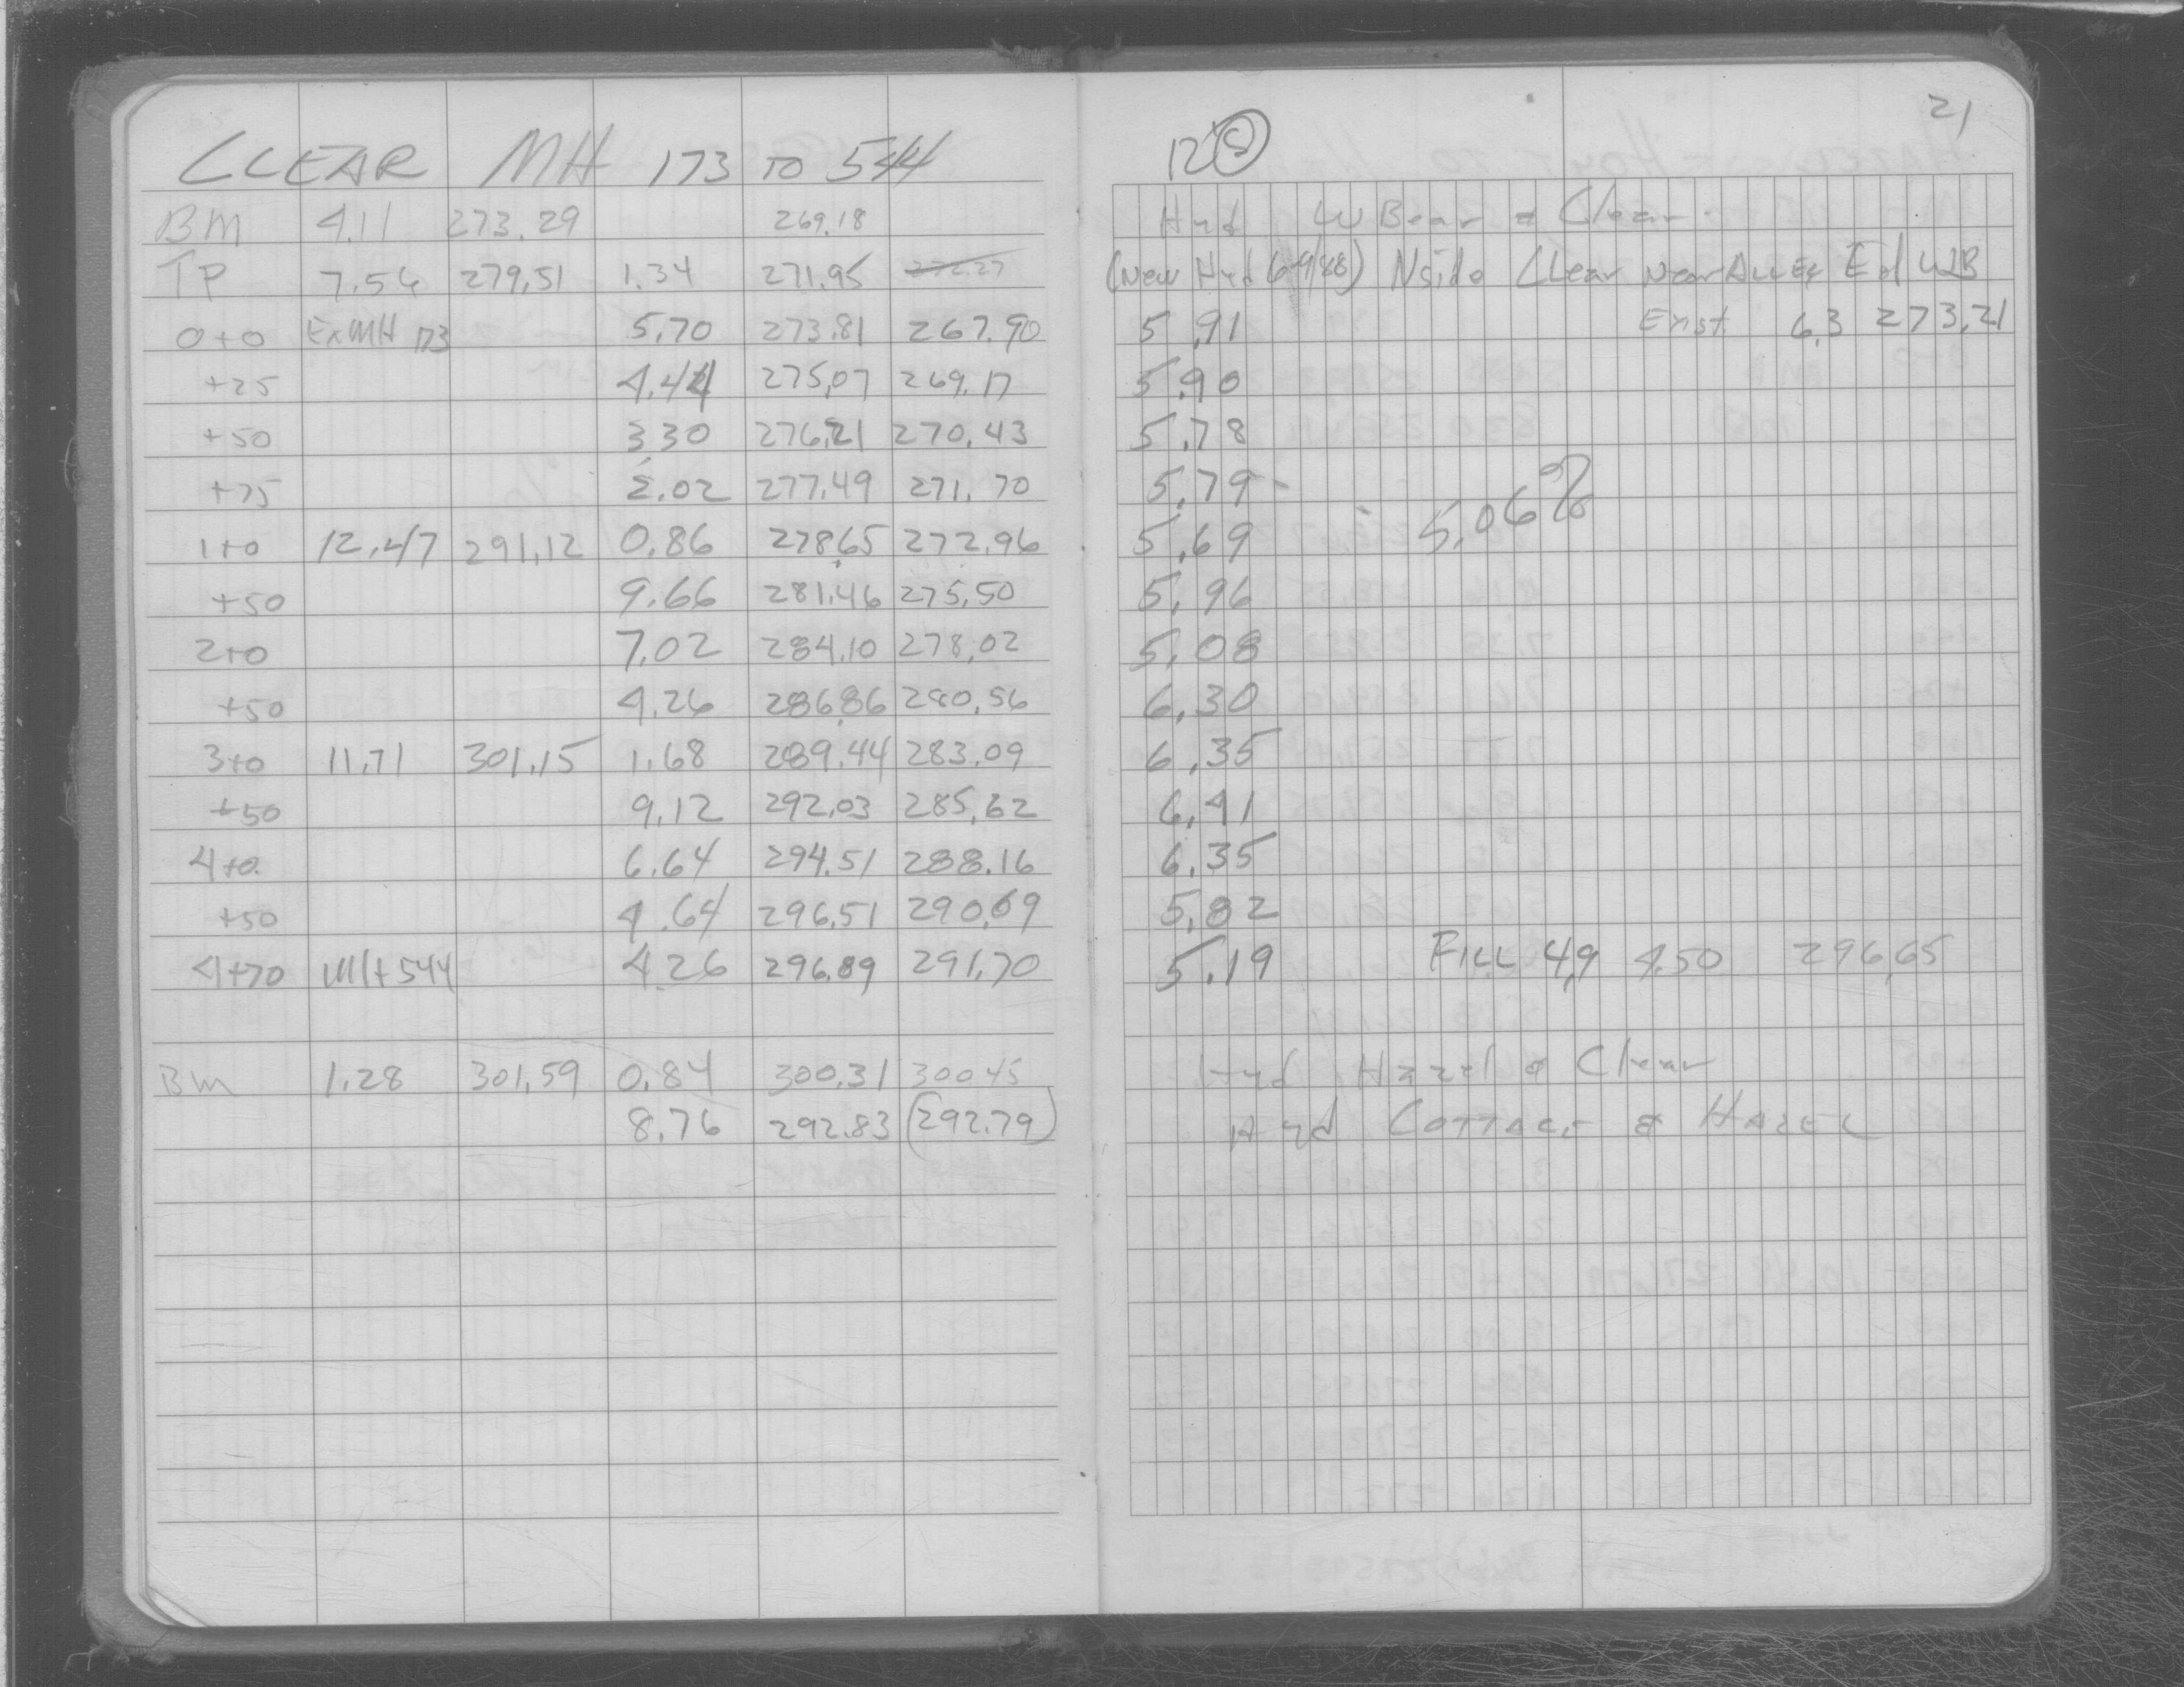 21
CLEAR MH 173 TO 544 12" (S)
BM 4.11 273.29 269.18 Hyd W Bear & Clear
TP 7.56 279.51 1.34 271.95 272.27 (New Hyd 6-9/88) N side Clear Near Alley E of WB
0+0 Ex MH 173 5.70 273.81 267.90 5.91 Exist 6.3 273.21
+25 4.44 275.07 269.17 5.90
+50 3.30 276.21 270.43 5.78
+75 2.02 277.49 271.70 5.79 - 5.06%
1+0 12.47 291.12 0.86 278.65 272.96 5.69
+50 9.66 281.46 275.50 5.96
2+0 7.02 284.10 278.02 5.08
+50 4.26 286.86 280.56 6.30
3+0 11.71 301.15 1.68 289.44 283.09 6.35
+50 9.12 292.03 285.62 6.41
4+0 6.64 294.51 288.16 6.35
+50 4.64 296.51 290.69 5.82
4+70 MH 544 4.26 296.89 291.70 5.19 FILL 4.9 4.50 296.65
BM 1.28 301.59 0.84 300.31 300.45 Hyd Hazel & Clear
8.76 292.83 (292.79) Hyd COTTAGE & HAZEL